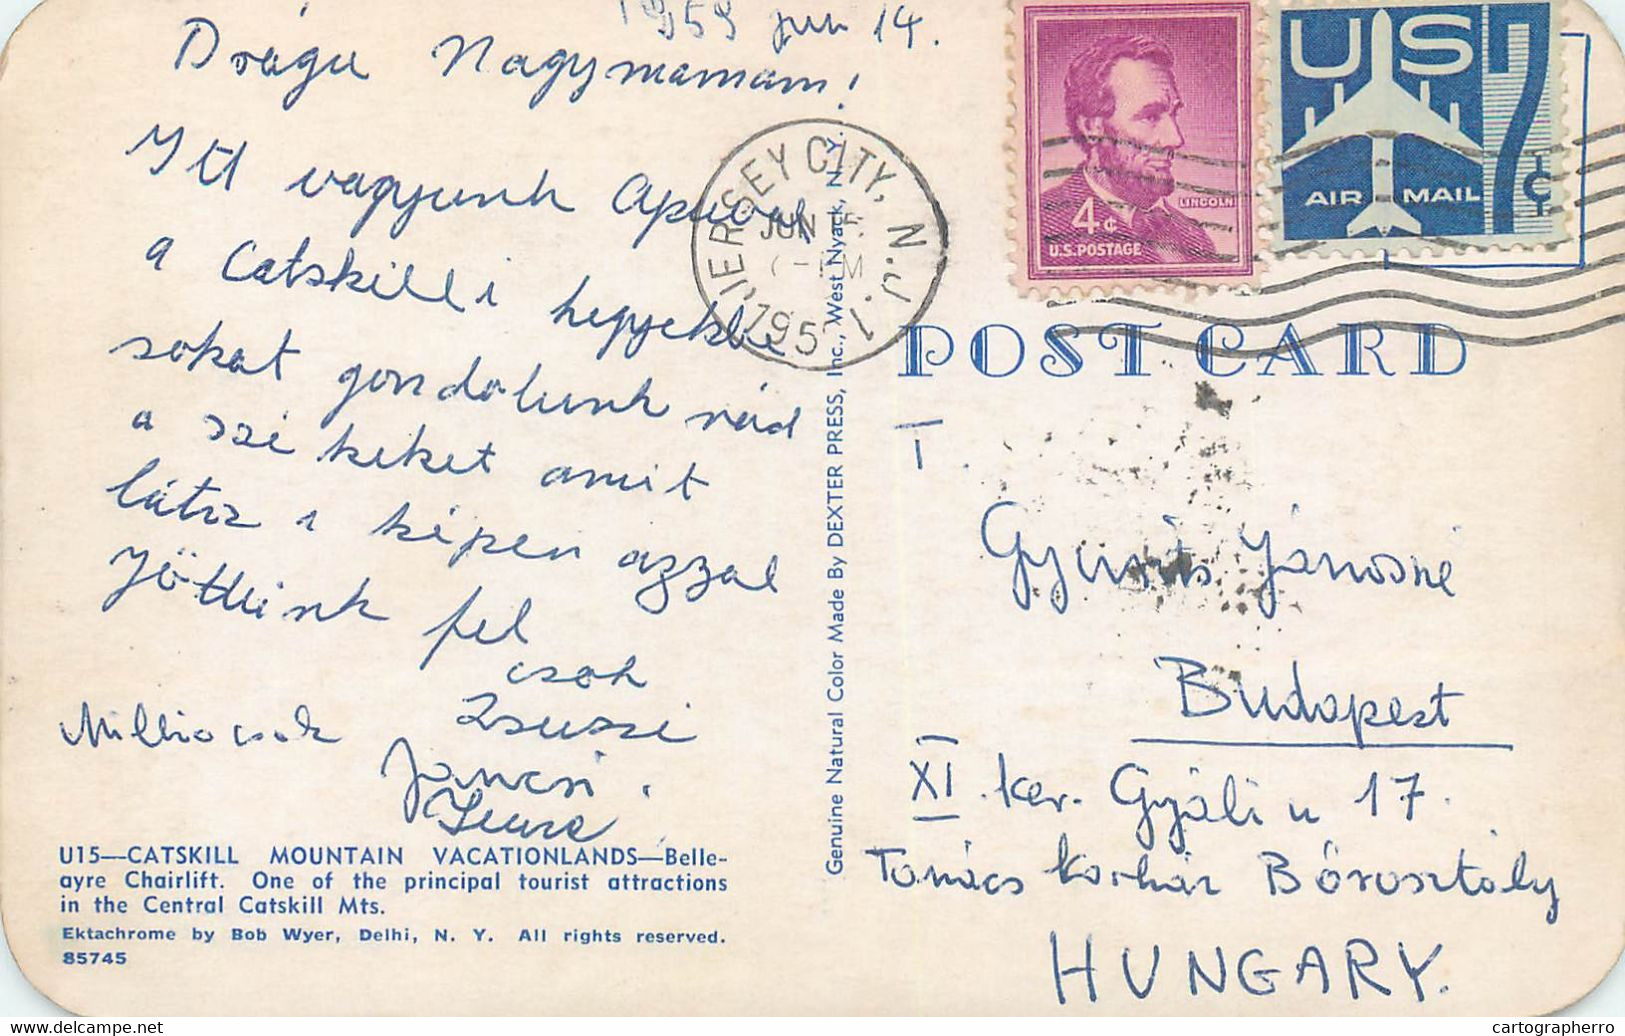 1959 jun 14.
Drága Nagymamam!
Itt vagyunk Apuval
a Catskilli hegyekbe
sokat gondolunk rád
a székeket amit
látsz a képen azzal
jöttünk fel
csok
Zsuzsi
Millio csok
Jancsi.
U15—CATSKILL MOUNTAIN VACATIONLANDS—Belle-
ayre Chairlift. One of the principal tourist attractions
in the Central Catskill Mts.
Ektachrome by Bob Wyer, Delhi, N. Y. All rights reserved.
85745
Genuine Natural Color Made By DEXTER PRESS, Inc., West Nyack, N. Y.
JERSEY CITY, N.J.
JUN
PM
195
1
4¢
LINCOLN
U.S. POSTAGE
US
7¢
AIR MAIL
POST CARD
T.
Jánosné
Budapest
XI. ker. Gyáli u 17.
Tanács Korház Bőrosztály
HUNGARY.
cartographerro
delcampe.net